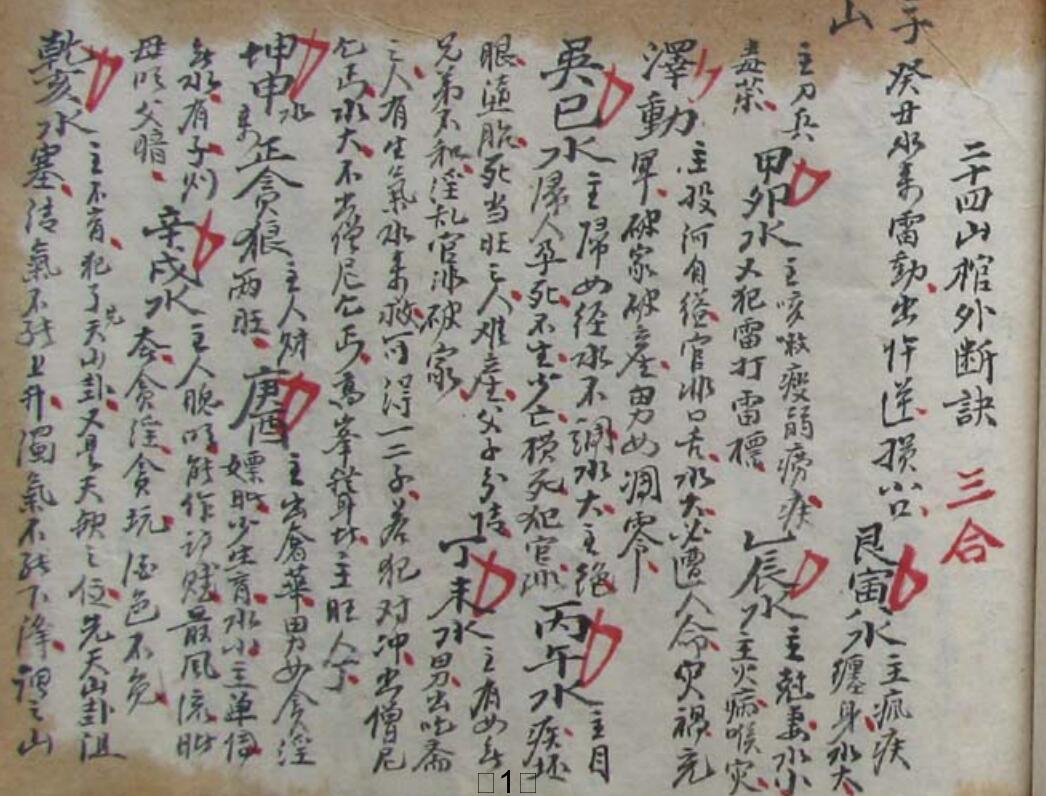 二十四山棺外断訣 三合
子山癸丑水来雷動出忤逆损小口艮寅水主瘋疾
缠身水大
主刀兵主咳嗽瘦弱癆疾乙辰水主尅妻水小
毒药甲卯水又犯雷打雷標主火病喉灾
澤動主投河自缢官非口舌水大必遭人命灾禍充
軍破家破産男女凋零
巽巳水主婦女经水不調水大主绝丙午水主目
婦人孕死不生少亡损死犯官非疾坯
眼墮胎死当旺之人难産父子分
兄弟不和淫乱官涉破家丁未水主有女无
男出吃斋
之人有生氣水来救可得一二子若犯对冲出僧尼
乞丐水大不出僧尼乞丐高峯耸起主旺人丁
坤申水来正貪狼主人财两旺庚酉主出奢華男女貪淫
嫖賍少生育水小主单傳
无水有子灼辛戌水主人聪明能作詩赋最風流賍
母明父暗套貪淫貪玩酒色不免
乾亥水主不育犯了先天山卦又是天缺之位先天山卦沮
塞结氣不能上升濁氣不能下降謂之山
1